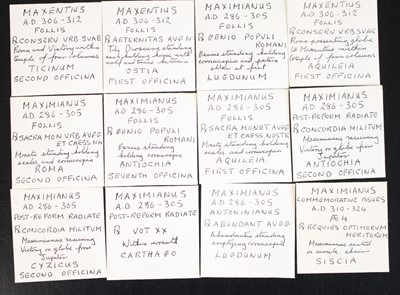 MAXENTIUS
A.D. 306-312
FOLLIS
R CONSERV URB SVAE
Roma and Victory within
temple of four columns
TICINUM
SECOND OFFICINA
MAXENTIUS
A.D. 306-312
FOLLIS
R AETERNITAS AVG N
The Dioscuri standing
OSTIA
FIRST OFFICINA
MAXIMIANUS
A.D. 286-305
FOLLIS
R GENIO POPULI
ROMANI
Genius standing holding
cornucopiae and patera
altar at foot
LUGDUNUM
MAXENTIUS
A.D. 306-312
FOLLIS
R CONSERV URB SVAE
Roma presenting globe
to Maxentius within
temple of four columns
AQUILEIA
FIRST OFFICINA
MAXIMIANUS
A.D. 286-305
FOLLIS
R SACRA MON URB AVGG
ET CAESS NN
Moneta standing holding
scales and cornucopiae
ROMA
SECOND OFFICINA
MAXIMIANUS
A.D. 286-305
FOLLIS
R GENIO POPULI
ROMANI
Genius standing holding
cornucopiae
ANTIOCHIA
SEVENTH OFFICINA
MAXIMIANUS
A.D. 286-305
FOLLIS
R SACRA MONET AVGG
ET CAESS NOSTR
Moneta standing holding
scales and cornucopiae
AQUILEIA
FIRST OFFICINA
MAXIMIANUS
A.D. 286-305
POST-REFORM RADIATE
R CONCORDIA MILITUM
Maximianus receiving
Victory on globe from
Jupiter
ANTIOCHIA
MAXIMIANUS
A.D. 286-305
POST-REFORM RADIATE
R CONCORDIA MILITUM
Maximianus receiving
Victory on globe from
Jupiter
CYZICUS
SECOND OFFICINA
MAXIMIANUS
A.D. 286-305
POST-REFORM RADIATE
R VOT XX
Within wreath
CARTHAGO
MAXIMIANUS
A.D. 286-305
ANTONINIANUS
R ABUNDANT AVGG
Abundantia standing
emptying cornucopiae
LUGDUNUM
MAXIMIANUS
COMMEMORATIVE ISSUES
A.D. 310-324
Æ 4
R REQUIES OPTIMORUM
MERITORUM
Maximianus seated
on curule chair
SISCIA